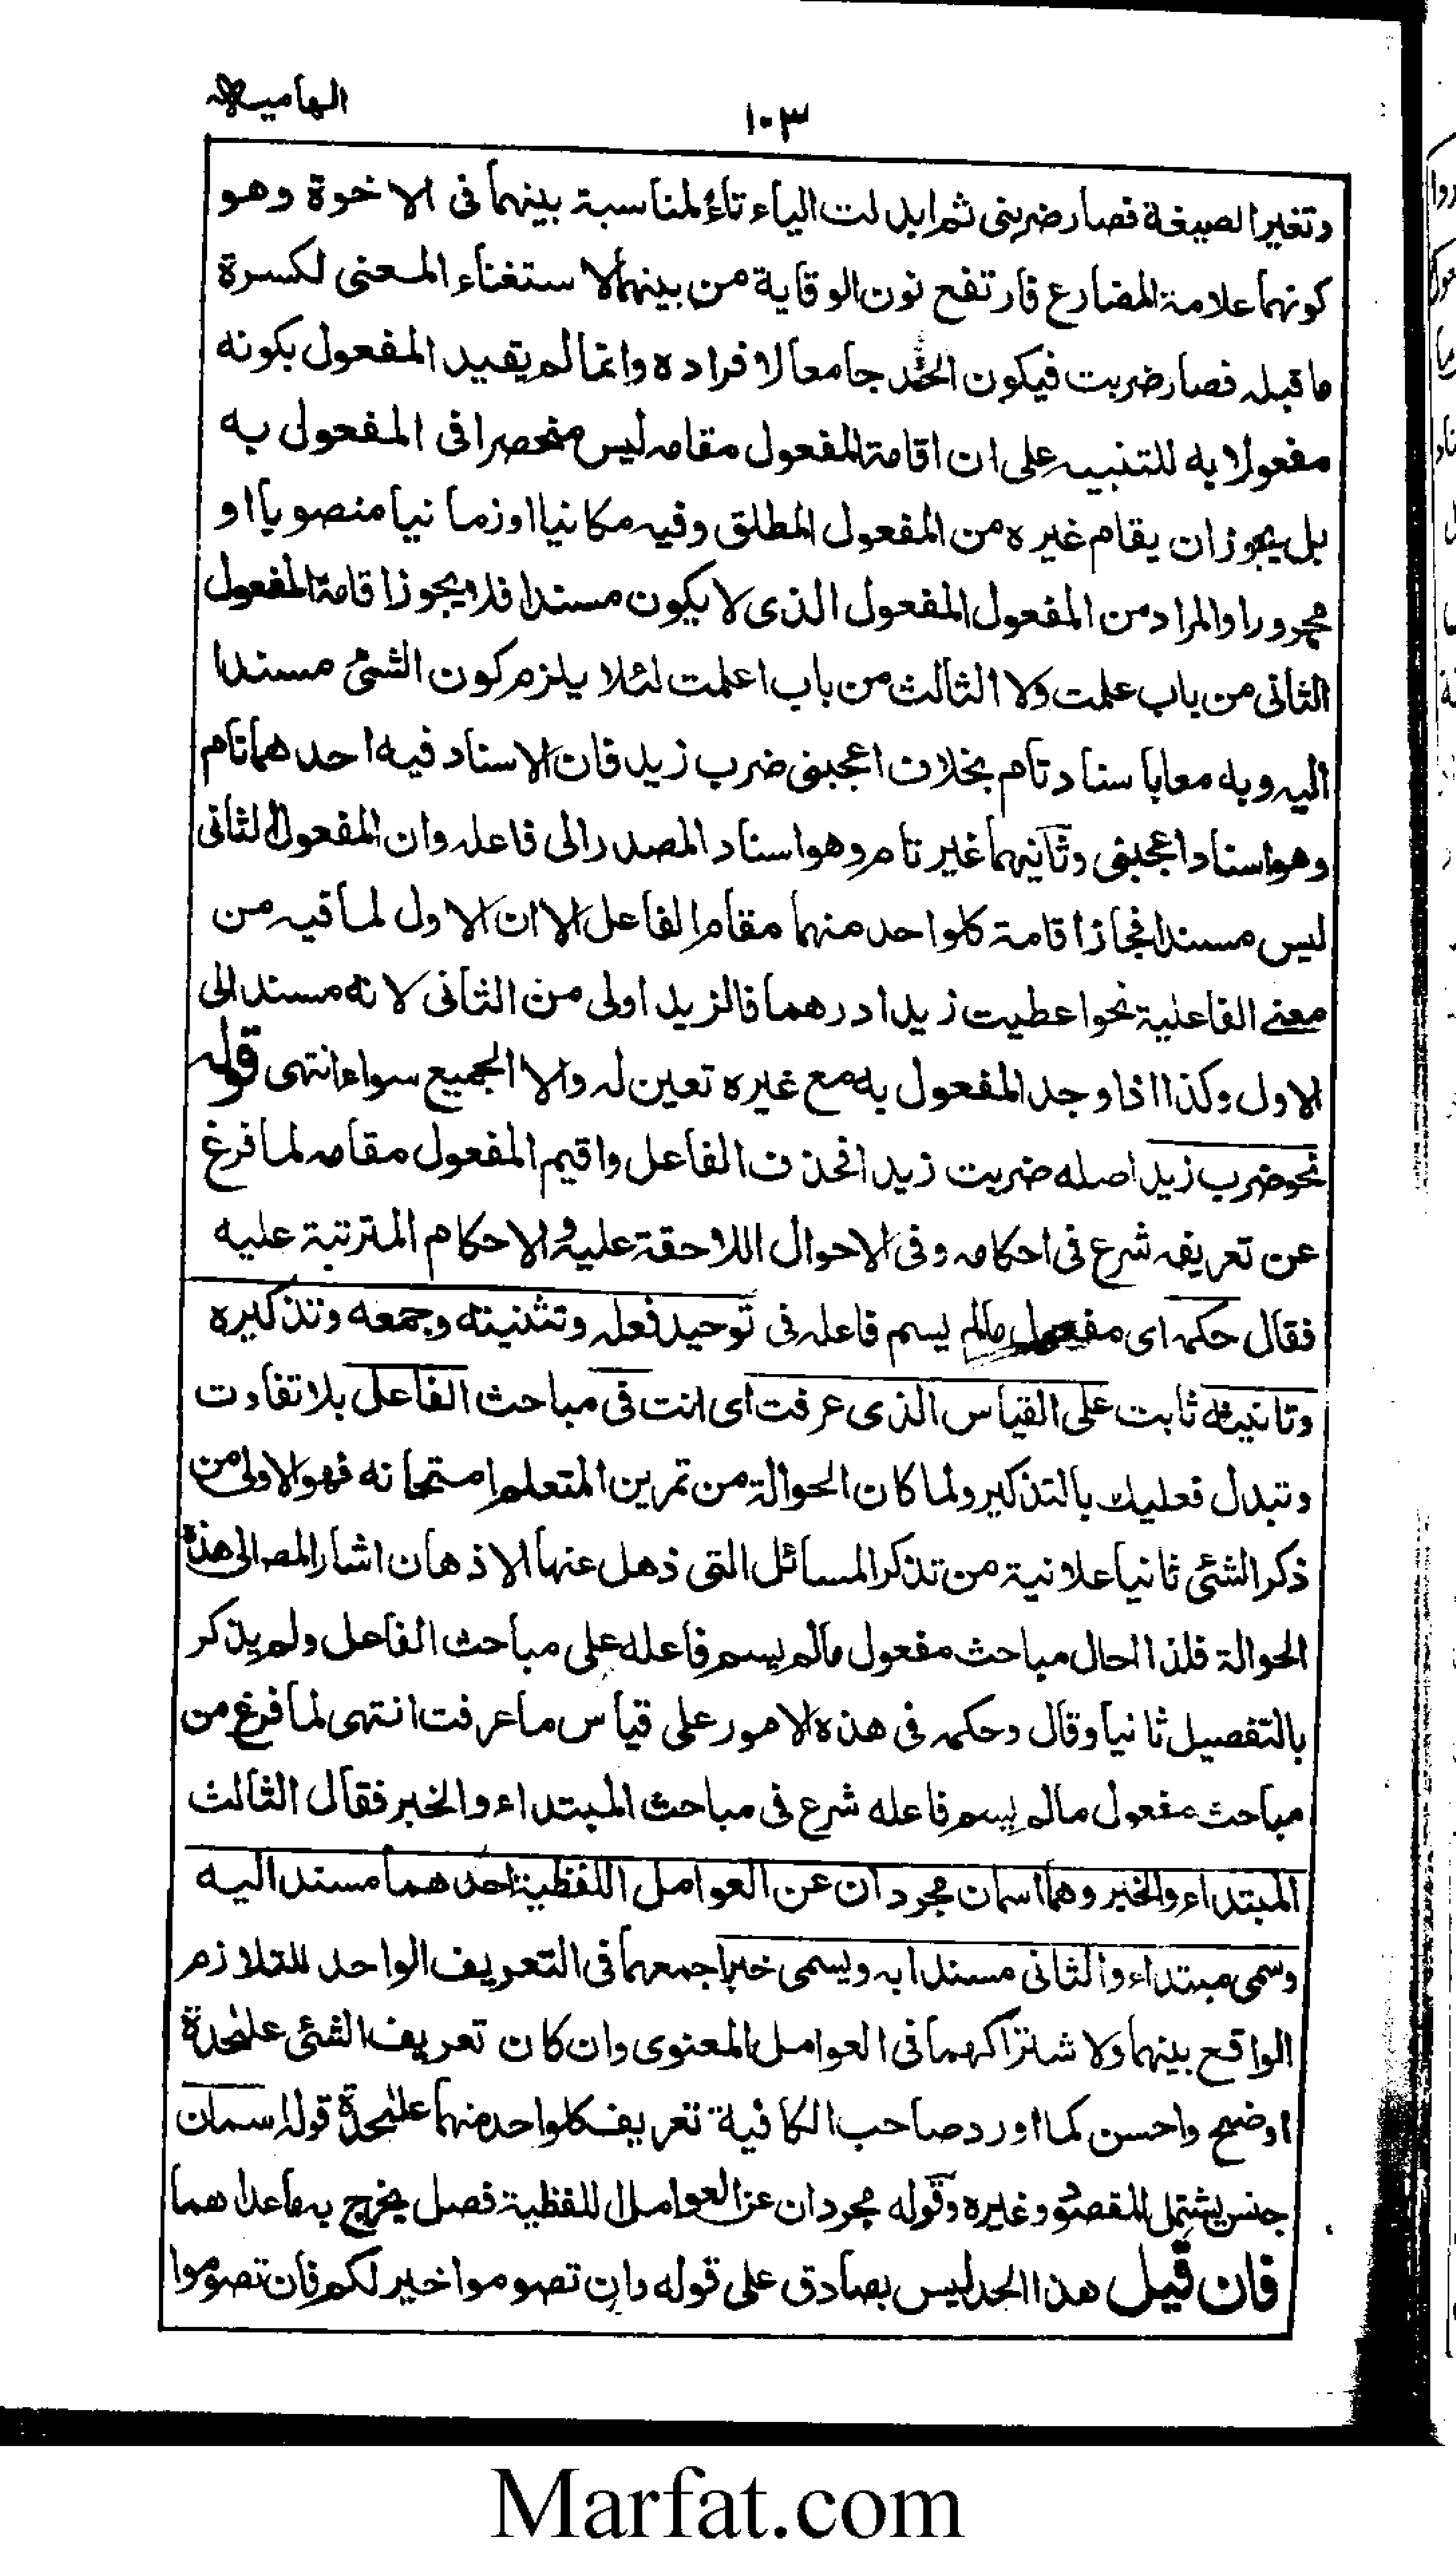 الهامیه
۱۰۳
وتغیر الصیغة فصار ضربنی ثم ابدلت الیاء تاءً لمناسبة بینهما فی الاخوة وهو
کونهما علامة المضارع فارتفع نون الوقایة من بینهما لاستغناء المعنی لکسرة
ماقبله فصار ضربت فیکون الحد جامعا لافراده وانما لم یقید المفعول بکونه
مفعولا به للتنبیه علی ان اقامة المفعول مقامه لیس منحصرا فی المفعول به
بل یجوز ان یقام غیره من المفعول المطلق وفیه مکانیا او زمانیا منصوبا او
مجرورا والمراد من المفعول المفعول الذی لا یکون مسندا فلا یجوز اقامة المفعول
الثانی من باب علمت ولا الثالث من باب اعلمت لئلا یلزم کون الشئ مسندا
الیه وبه معا باسناد تام بخلاف اعجبنی ضرب زید فان الاسناد فیه احدهما تام
وهو اسناد اعجبنی وثانیهما غیر تام وهو اسناد المصدر الی فاعله وان المفعول الثانی
لیس مسندا فجاز اقامة کلواحد منهما مقام الفاعل الا ان الاول لما فیه من
معنے الفاعلیة نحو اعطیت زیدا درهما فالزید اولی من الثانی لانه مسند الی
الاول وکذا اذا وجد المفعول به مع غیره تعین له والا الجمیع سواء انتهی قوله
نحو ضرب زید اصله ضربت زیدا فحذف الفاعل واقیم المفعول مقامه لما فرغ
عن تعریفه شرع فی احکامه وفی الاحوال اللاحقة علیه والاحکام المترتبة علیه
فقال حکمه ای مفعول مالم یسم فاعله فی توحید فعله وتثنیته وجمعه وتذکیره
وتانیثه ثابت علی القیاس الذی عرفت ای انت فی مباحث الفاعل بلا تفاوت
وتبدل فعلیک بالتذکیر ولما کان الحوالة من تمرین المتعلم امتحانه فهو الاولی من
ذکر الشئی ثانیا علانیة من تذکر المسائل التی ذهل عنها الاذهان اشار المص الی هذه
الحوالة فلذا احال مباحث مفعول مالم یسم فاعله علی مباحث الفاعل ولم یذکر
بالتفصیل ثانیا وقال وحکمه فی هذه الامور علی قیاس ما عرفت انتهی لما فرغ من
مباحث مفعول مالم یسم فاعله شرع فی مباحث المبتداء والخبر فقال الثالث
المبتداء والخبر وهما اسمان مجردان عن العوامل اللفظیة احدهما مسندا الیه
وسمی مبتداء والثانی مسندا به ویسمی خبرا جمعهما فی التعریف الواحد للتلازم
الواقع بینهما ولاشتراکهما فی العوامل المعنوی وان کان تعریف الشئی علیٰحدة
اوضح واحسن کما اورد صاحب الکافیة تعریف کلواحد منهما علیٰحدة قوله اسمان
جنس یشتمل المقصود وغیره وقوله مجردان عن العوامل اللفظیة فصل یخرج به ماعداهما
فان قیل هذا الحد لیس بصادق علی قوله وان تصوموا خیر لکم فان تصوموا
Marfat.com